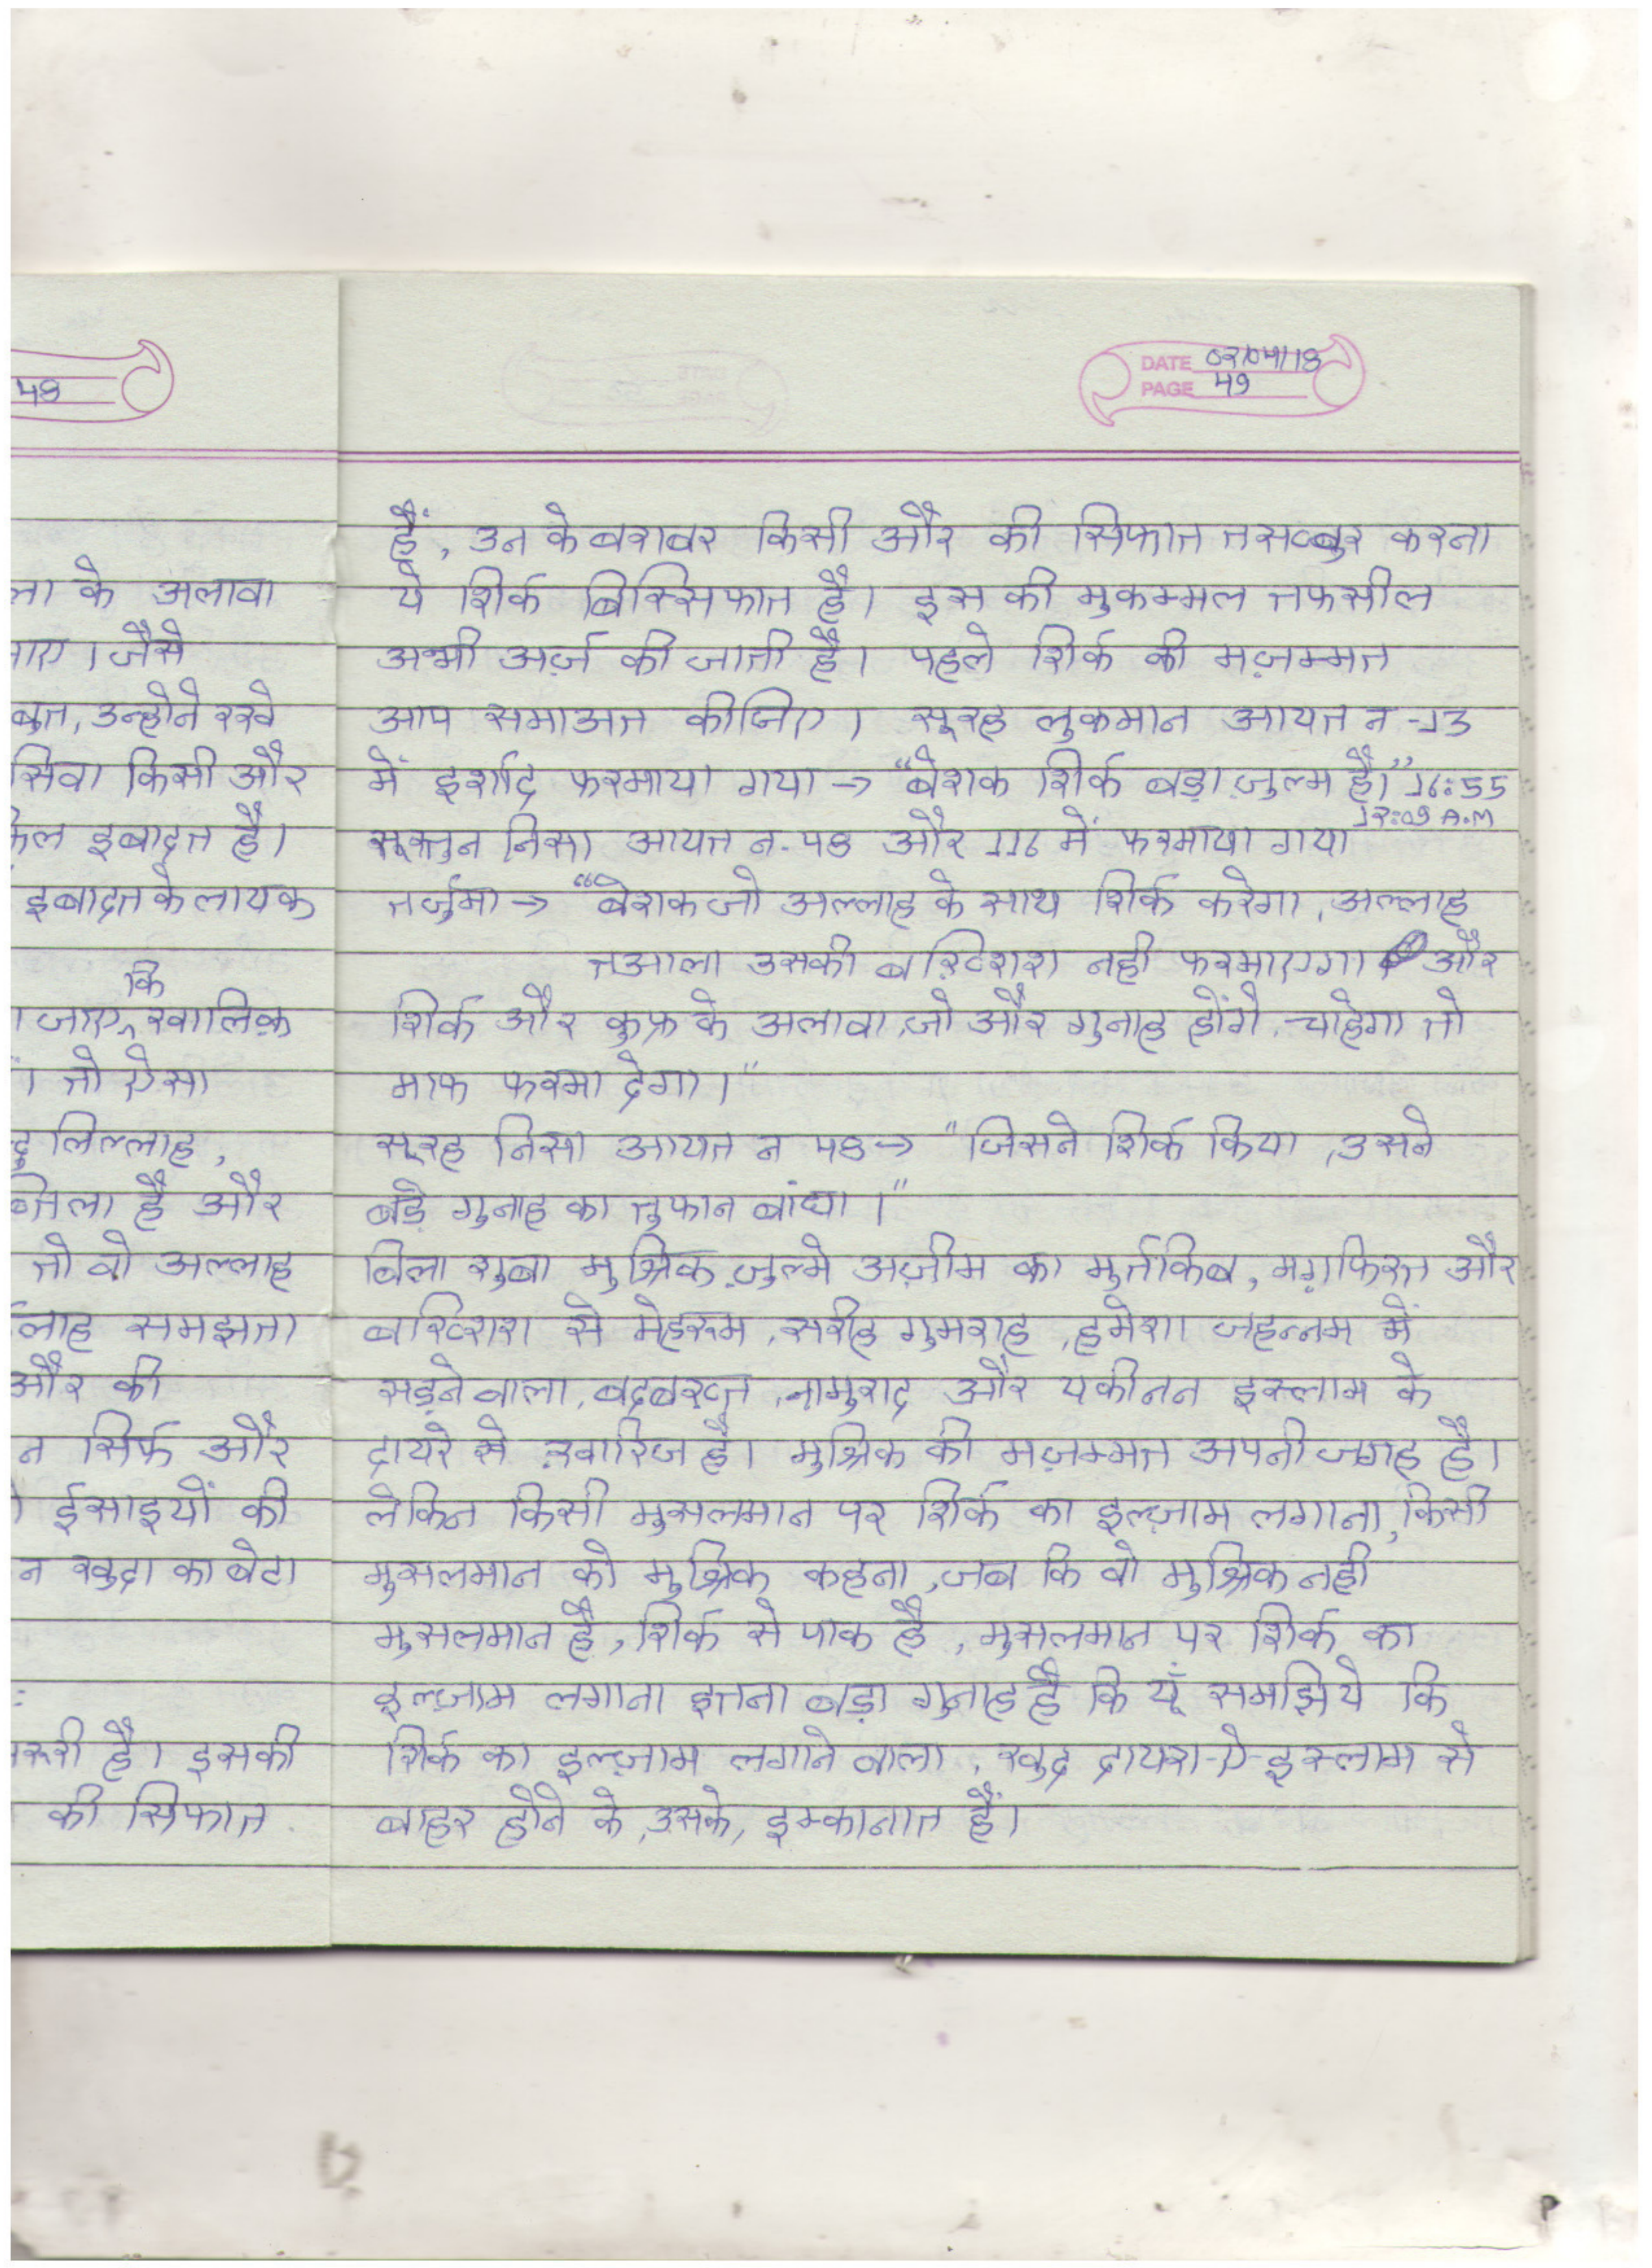 48
ला के अलावा
जैसे
बुत, उन्होने रखे
सिवा किसी और
इबादत है।
इबादत के लायक
कि
जाए, खालिक़
। तो ऐसा
लिल्लाह,
है और
तो वो अल्लाह
समझता
और की
न सिर्फ और
ईसाइयों की
न खुदा का बेटा
है। इसकी
की सिफात
DATE 02/04/18
PAGE 49
हैं, उन के बराबर किसी और की सिफात तसव्वुर करना
ये शिर्क बिस्सिफात है। इस की मुकम्मल तफसील
अभी अर्ज़ की जाती है। पहले शिर्क की मज़म्मत
आप समाअत कीजिए। सूरह लुकमान आयत न -13
में इर्शाद फरमाया गया → "बेशक शिर्क बड़ा ज़ुल्म है।" 16:55
12:09 A.M
सूरतुन निसा आयत न. 48 और 116 में फरमाया गया
तर्जुमा → "बेशक जो अल्लाह के साथ शिर्क करेगा, अल्लाह
तआला उसकी बख़्शिश नही फरमाएगा और
शिर्क और कुफ्र के अलावा, जो और गुनाह होंगे, चाहेगा तो
माफ फरमा देगा।"
सूरह निसा आयत न 48 → "जिसने शिर्क किया, उसने
बड़े गुनाह का तुफान बांधा।"
बिला शुबा मुश्रिक, ज़ुल्मे अज़ीम का मुर्तकिब, मग़फिरत और
बख्शिश से मेहरूम, सरीह गुमराह, हमेशा जहन्नम में
सड़ने वाला, बदबख़्त, नामुराद और यकीनन इस्लाम के
दायरे से ख़ारिज है। मुश्रिक की मज़म्मत अपनी जगह है।
लेकिन किसी मुसलमान पर शिर्क का इल्ज़ाम लगाना, किसी
मुसलमान को मुश्रिक कहना, जब कि वो मुश्रिक नही
मुसलमान है, शिर्क से पाक है, मुसलमान पर शिर्क का
इल्ज़ाम लगाना इतना बड़ा गुनाह है कि यूँ समझिये कि
शिर्क का इल्ज़ाम लगाने वाला, खुद दायरा-ए-इस्लाम से
बाहर होने के, उसके, इम्कानात हैं।